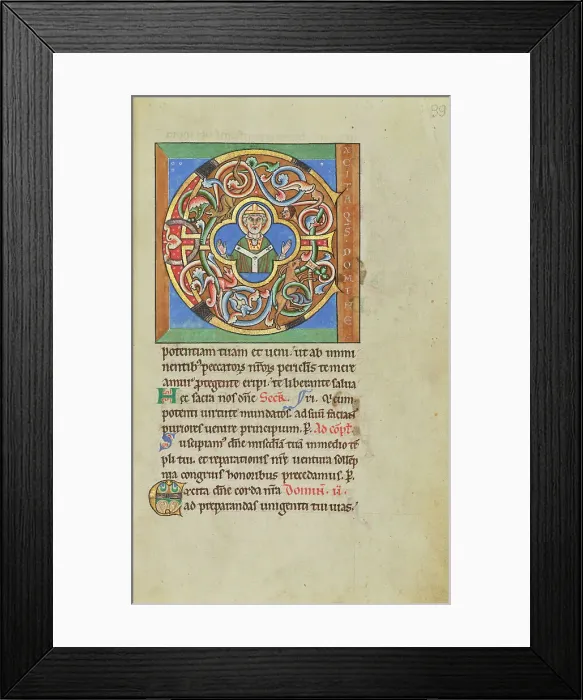 99
XCITA·QS·DOMINE
potentiam tuam et veni. ut ab immi
nentib' peccatoꝝ nr̄oꝝ periclis te mere
amur protegente eripi. te liberante salua
Hec sacra nos dn̄e Secr̄. ri. Q' cum
potenti uirtute mundatos. ad suū faciant
puriores uenire principium. P. Ad cōpl.
Suscipiam' dn̄e miscdiā tuā in medio tē
pli tui. et reparationis nr̄e uentura sollēp
nia congruis honoribus precedamus. P.
Excita dn̄e corda nr̄a Domin̄. ii.
ad preparandas unigeniti tui uias.